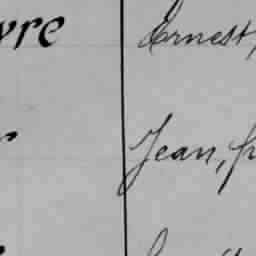 vre Ernest,
r Jean, fr